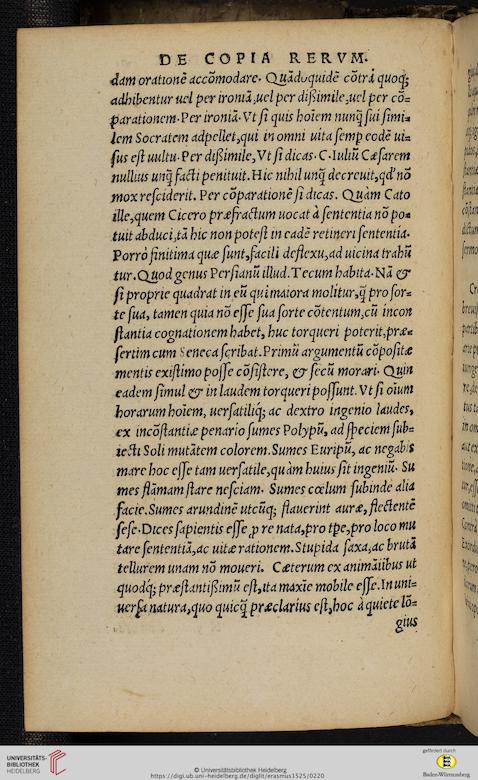 DE COPIA RERVM.
dam orationē accōmodare. Quādoquidē cōtrā quoq;
adhibentur uel per ironiā, uel per dißimile, uel per cō-
parationem. Per ironiā. Vt si quis hoīem nunq̄ sui simi-
lem Socratem adpellet, qui in omni uita semp eodē ui-
sus est uultu. Per dißimile, Vt si dicas. C. Iuliū Cæsarem
nullius unq̄ facti penituit. Hic nihil unq̄ decreuit, qd' nō
mox resciderit. Per cōparationē si dicas. Quàm Cato
ille, quem Cicero præfractum uocat à sententia nō po-
tuit abduci, tā hic non potest in eadē retineri sententia.
Porrò finitima quæ sunt, facili deflexu, ad uicina trahū
tur. Quod genus Persianū illud. Tecum habita. Nā &
si proprie quadrat in eū qui maiora molitur, q̄ pro sor-
te sua, tamen quia nō esse sua sorte cōtentum, cū incon
stantia cognationem habet, huc torqueri poterit, præ-
sertim cum Seneca scribat. Primū argumentū cōpositæ
mentis existimo posse cōsistere, & secū morari. Quin
eadem simul & in laudem torqueri possunt. Vt si oīum
horarum hoīem, uersatiliq; ac dextro ingenio laudes,
ex incōstantiæ penario sumes Polypū, ad speciem sub-
iecti Soli mutātem colorem. Sumes Euripū, ac negabis
mare hoc esse tam uersatile, quàm huius sit ingeniū. Su
mes flāmam stare nesciam. Sumes cœlum subinde alia
facie. Sumes arundinē utcūq; flauerint auræ, flectentē
sese. Dices sapientis esse p re nata, pro tpe, pro loco mu
tare sententiā, ac uitæ rationem. Stupida saxa, ac brutā
tellurem unam nō moueri. Cæterum ex animātibus ut
quodq; præstantißimū est, ita maxīe mobile esse. In uni-
uersa natura, quo quicq̄ præclarius est, hoc à quiete lō-
gius
UNIVERSITÄTS-
BIBLIOTHEK
HEIDELBERG
© Universitätsbibliothek Heidelberg
https://digi.ub.uni-heidelberg.de/diglit/erasmus1525/0220
gefördert durch
Baden-Württemberg